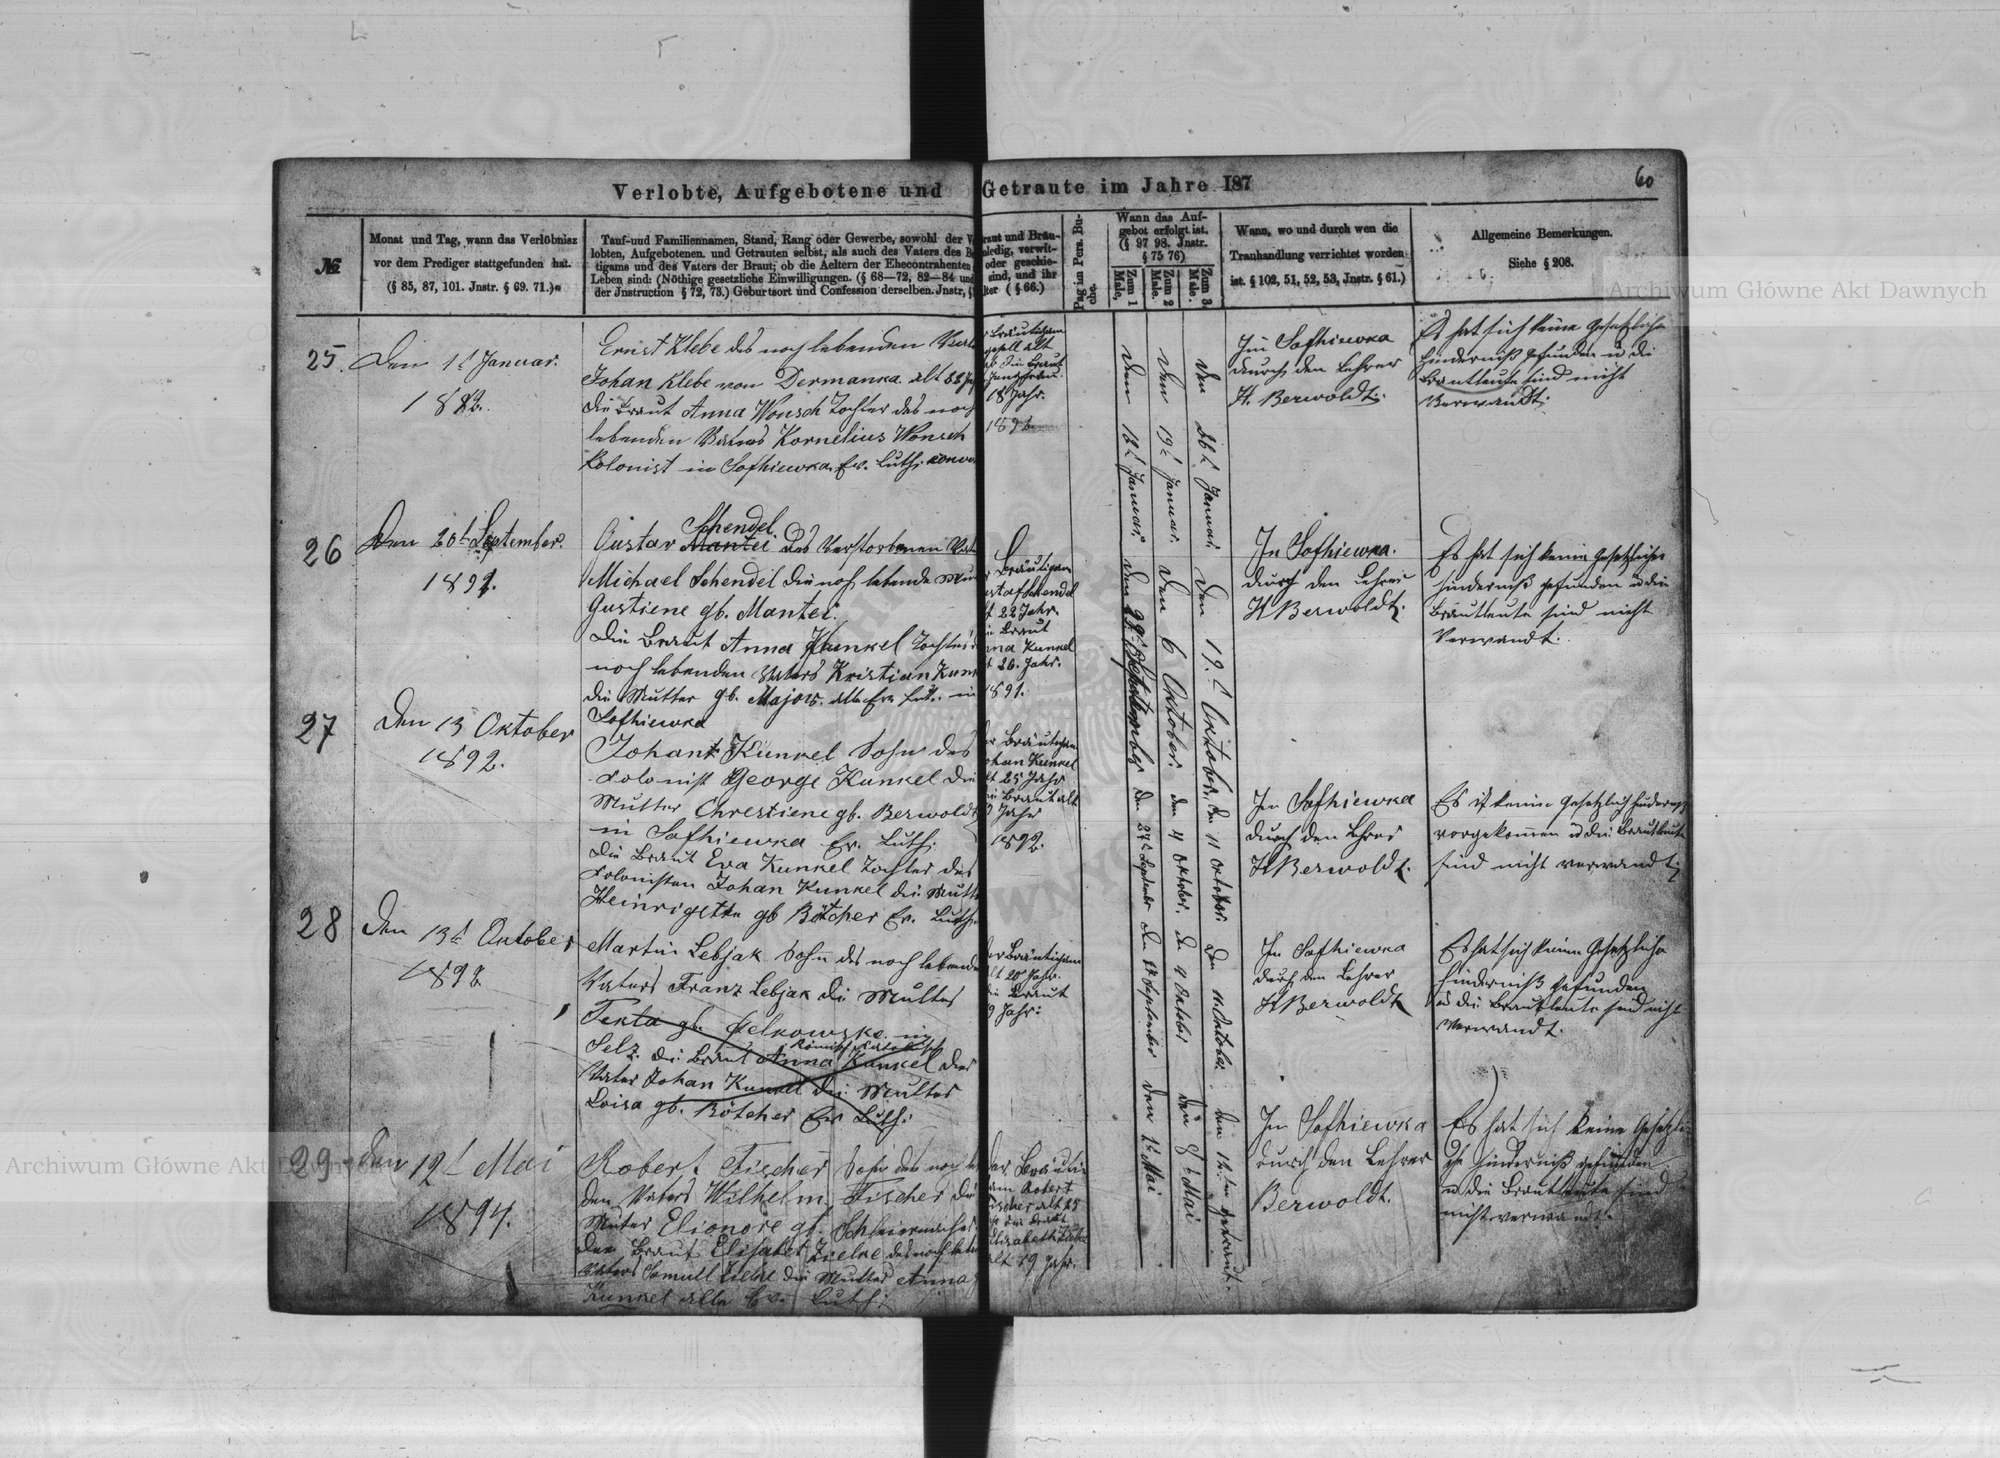 Verlobte, Aufgebotene und Getraute im Jahre 187
60
№
Monat und Tag, wann das Verlöbniss
vor dem Prediger stattgefunden hat.
(§ 85, 87, 101. Jnstr. § 69. 71.)
Tauf-uud Familiennamen, Stand, Rang oder Gewerbe, sowohl der
lobten, Aufgebotenen. und Getrauten selbst, als auch des Vaters des
tigams und des Vaters der Braut; ob die Aeltern der Ehecontrahenten
Leben sind: (Nöthige gesetzliche Einwilligungen. (§ 68—72, 82—84 und
der Jnstruction § 72, 73.) Geburtsort und Confession derselben. Jnstr,
raut und Bräu-
ledig, verwit-
oder geschie-
sind, und ihr
lter ( § 66.)
Pag im Pers. Bu-
che.
Wann das Auf-
gebot erfolgt ist.
(§ 97 98. Jnstr.
§ 75 76)
Zum 1
Male,
Zum 2
Male.
Zum 3
Male.
Wann, wo und durch wen die
Trauhandlung verrichtet worden
ist. § 102, 51, 52, 53, Jnstr. § 61.)
Allgemeine Bemerkungen.
Siehe § 208.
25.
Den 1t Januar.
Ernst Klebe des noch lebenden
Johan Klebe von Dermanka. alt
die Braut Anna Wonsch Tochter des noch
lebenden Vaters Kornelius Wonsch
Kolonist in Sofhiewka. Ev. Luth.
Bräutigam
Braut
Jungfrau
18 Jahr.
den 12t Januar.
den 19t Januar.
den 26t Januar.
In Sofhiewka
durch den Lehrer
H. Berwoldt.
Es hat sich keine Gesetzliche
Hinderniß gefunden u die
Brautleute sind nicht
Verwandt.
26
Den 20t September.
1891.
Schendel.
Gustav Mantei des Verstorbenen
Michael Schendel die noch lebende
Gustiene gb. Mantei.
Die Braut Anna Kunkel Tochter
noch lebenden Vaters Kristian
die Mutter gb. Majors. alle Ev. Lut. in
Sofhiewka
Bräutigam
stafschendel
22 Jahr.
Braut
nna Kunkel
20. Jahr.
1891.
den 29t September
den 6 Oktober.
den 19.t Oktober.
In Sofhiewka.
durch den Lehrer
H Berwoldt.
Es hat sich keine Gesetzliche
Hinderniß gefunden u die
Brautleute sind nicht
Verwandt.
27
Den 13 Oktober
1892.
Johant Kunkel Sohn des
Kolonist George Kunkel die
Mutter Chrestiene gb. Berwoldt
in Sofhiewka Ev. Luth.
Die Braut Eva Kunkel Tochter des
Kolonisten Johan Kunkel die Mutter
Heinrigette gb Bötcher Ev. Luth.
Bräutigam
ohan Kunkel
25 Jahr
Braut alt
Jahr
1892.
den 27t September
den 4 Oktober.
den 11 Oktober.
In Sofhiewka
durch den Lehrer
H Berwoldt.
Es ist keine Gesetzlich
vorgekomen u die Brautleute
sind nicht verwandt.
28
Den 13t Oktober
Martin Lebjak Sohn des noch lebende
Vaters Franz Lebjak die Mutter
Tekta gb. Felkowske. in
Römisch Katolisch
Selz. die Braut Anna Kunkel der
Vater Johan Kunkel die Mutter
Loisa gb. Bötcher Ev Luth.
er Bräutigam
lt 20 Jahr.
die Braut
9 Jahr.
In Sofhiewka
durch den Lehrer
H Berwoldt
Es hat sich keine Gesetzliche
Hinderniß gefunden
u die Brautleute sind nicht
Verwandt.
29
den 12t Mai
1894.
Robert Fischer Sohn des noch
den Vaters Wilhelm Fischer die
Muter Elionore gb. Schleiermacher
Die Braut Elisabet Zielke des noch
Vaters Samuel Zielke die Mutter Anna
Kunkel alle Ev. Luth.
er Bräuti
am Robert
Fischer alt 25
die Braut
Elisabeth Zielke
alt 19 Jahr.
den 1t Mai
den 8t Mai
den 12.ten getraut.
In Sofhiewka
durch den Lehrer
Berwoldt.
Es hat sich keine Gesetzli
che Hinderniß gefunden
u die Brautleute sind
nicht verwandt.
Archiwum Główne Akt Dawnych
Archiwum Główne Akt Dawnych